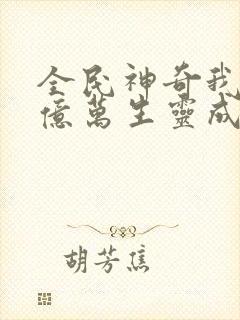 全民神奇我
億萬生靈成
胡芳焦